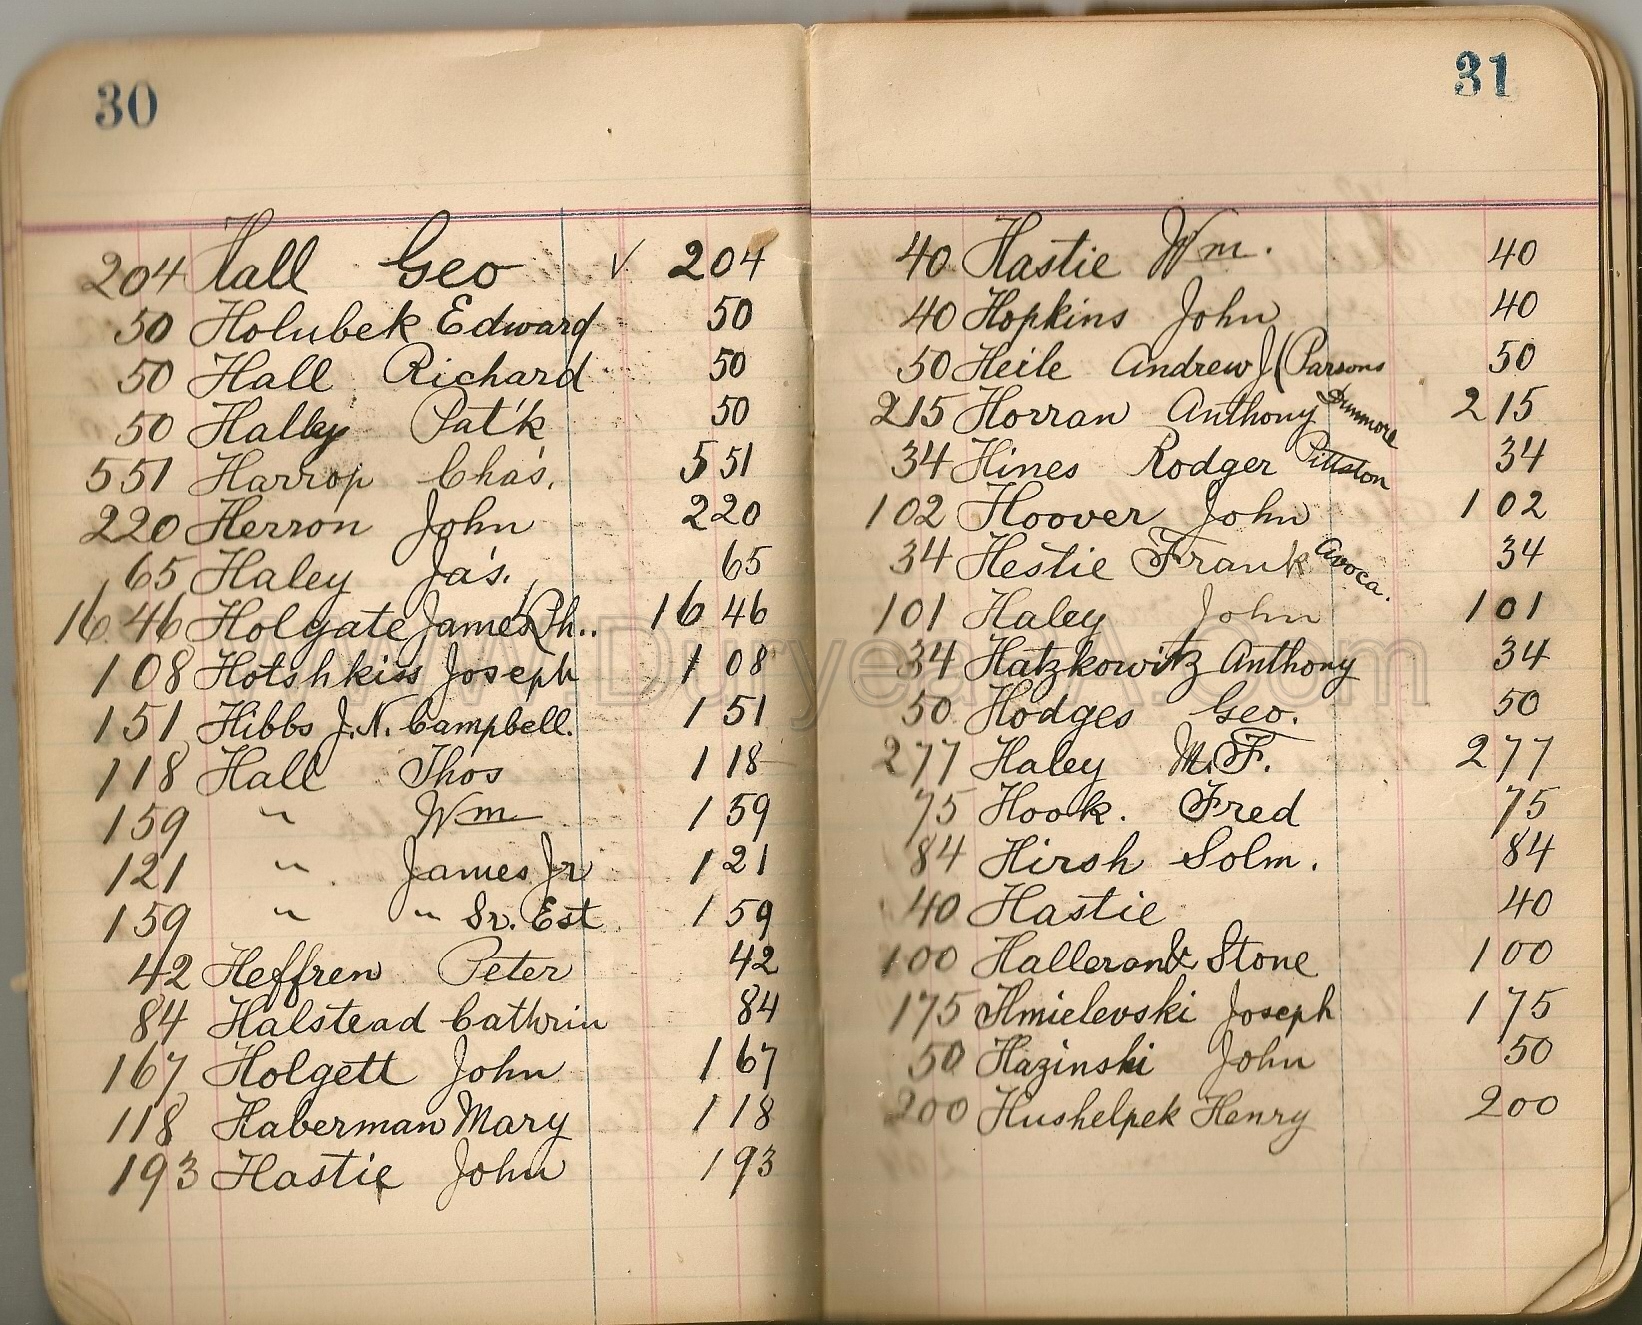 30
204 Hall Geo √ 204
50 Holubek Edward 50
50 Hall Richard 50
50 Halley Pat'k 50
551 Harrop Chas. 551
220 Herron John 220
65 Haley Ja's. 65
1646 Holgate James Ph.. 1646
108 Hotshkiss Joseph 108
151 Hibbs J. N. Campbell. 151
118 Hall Thos 118
159 " Wm 159
121 " James Jr 121
159 " " Sr. Est 159
42 Heffren Peter 42
84 Halstead Cathrin 84
167 Holgett John 167
118 Haberman Mary 118
193 Hastie John 193
31
40 Hastie Wm. 40
40 Hopkins John 40
50 Heile Andrew J (Parsons 50
215 Horran Anthony Dunmore 215
34 Hines Rodger Pittston 34
102 Hoover John 102
34 Hestie Frank Avoca. 34
101 Haley John 101
34 Hatzkowitz Anthony 34
50 Hodges Geo. 50
277 Haley M. F. 277
75 Hook. Fred 75
84 Hirsh Solm. 84
40 Hastie 40
100 Halleran & Stone 100
175 Hmielevski Joseph 175
50 Hazinski John 50
200 Hushelpek Henry 200
www.DuryeaPA.com